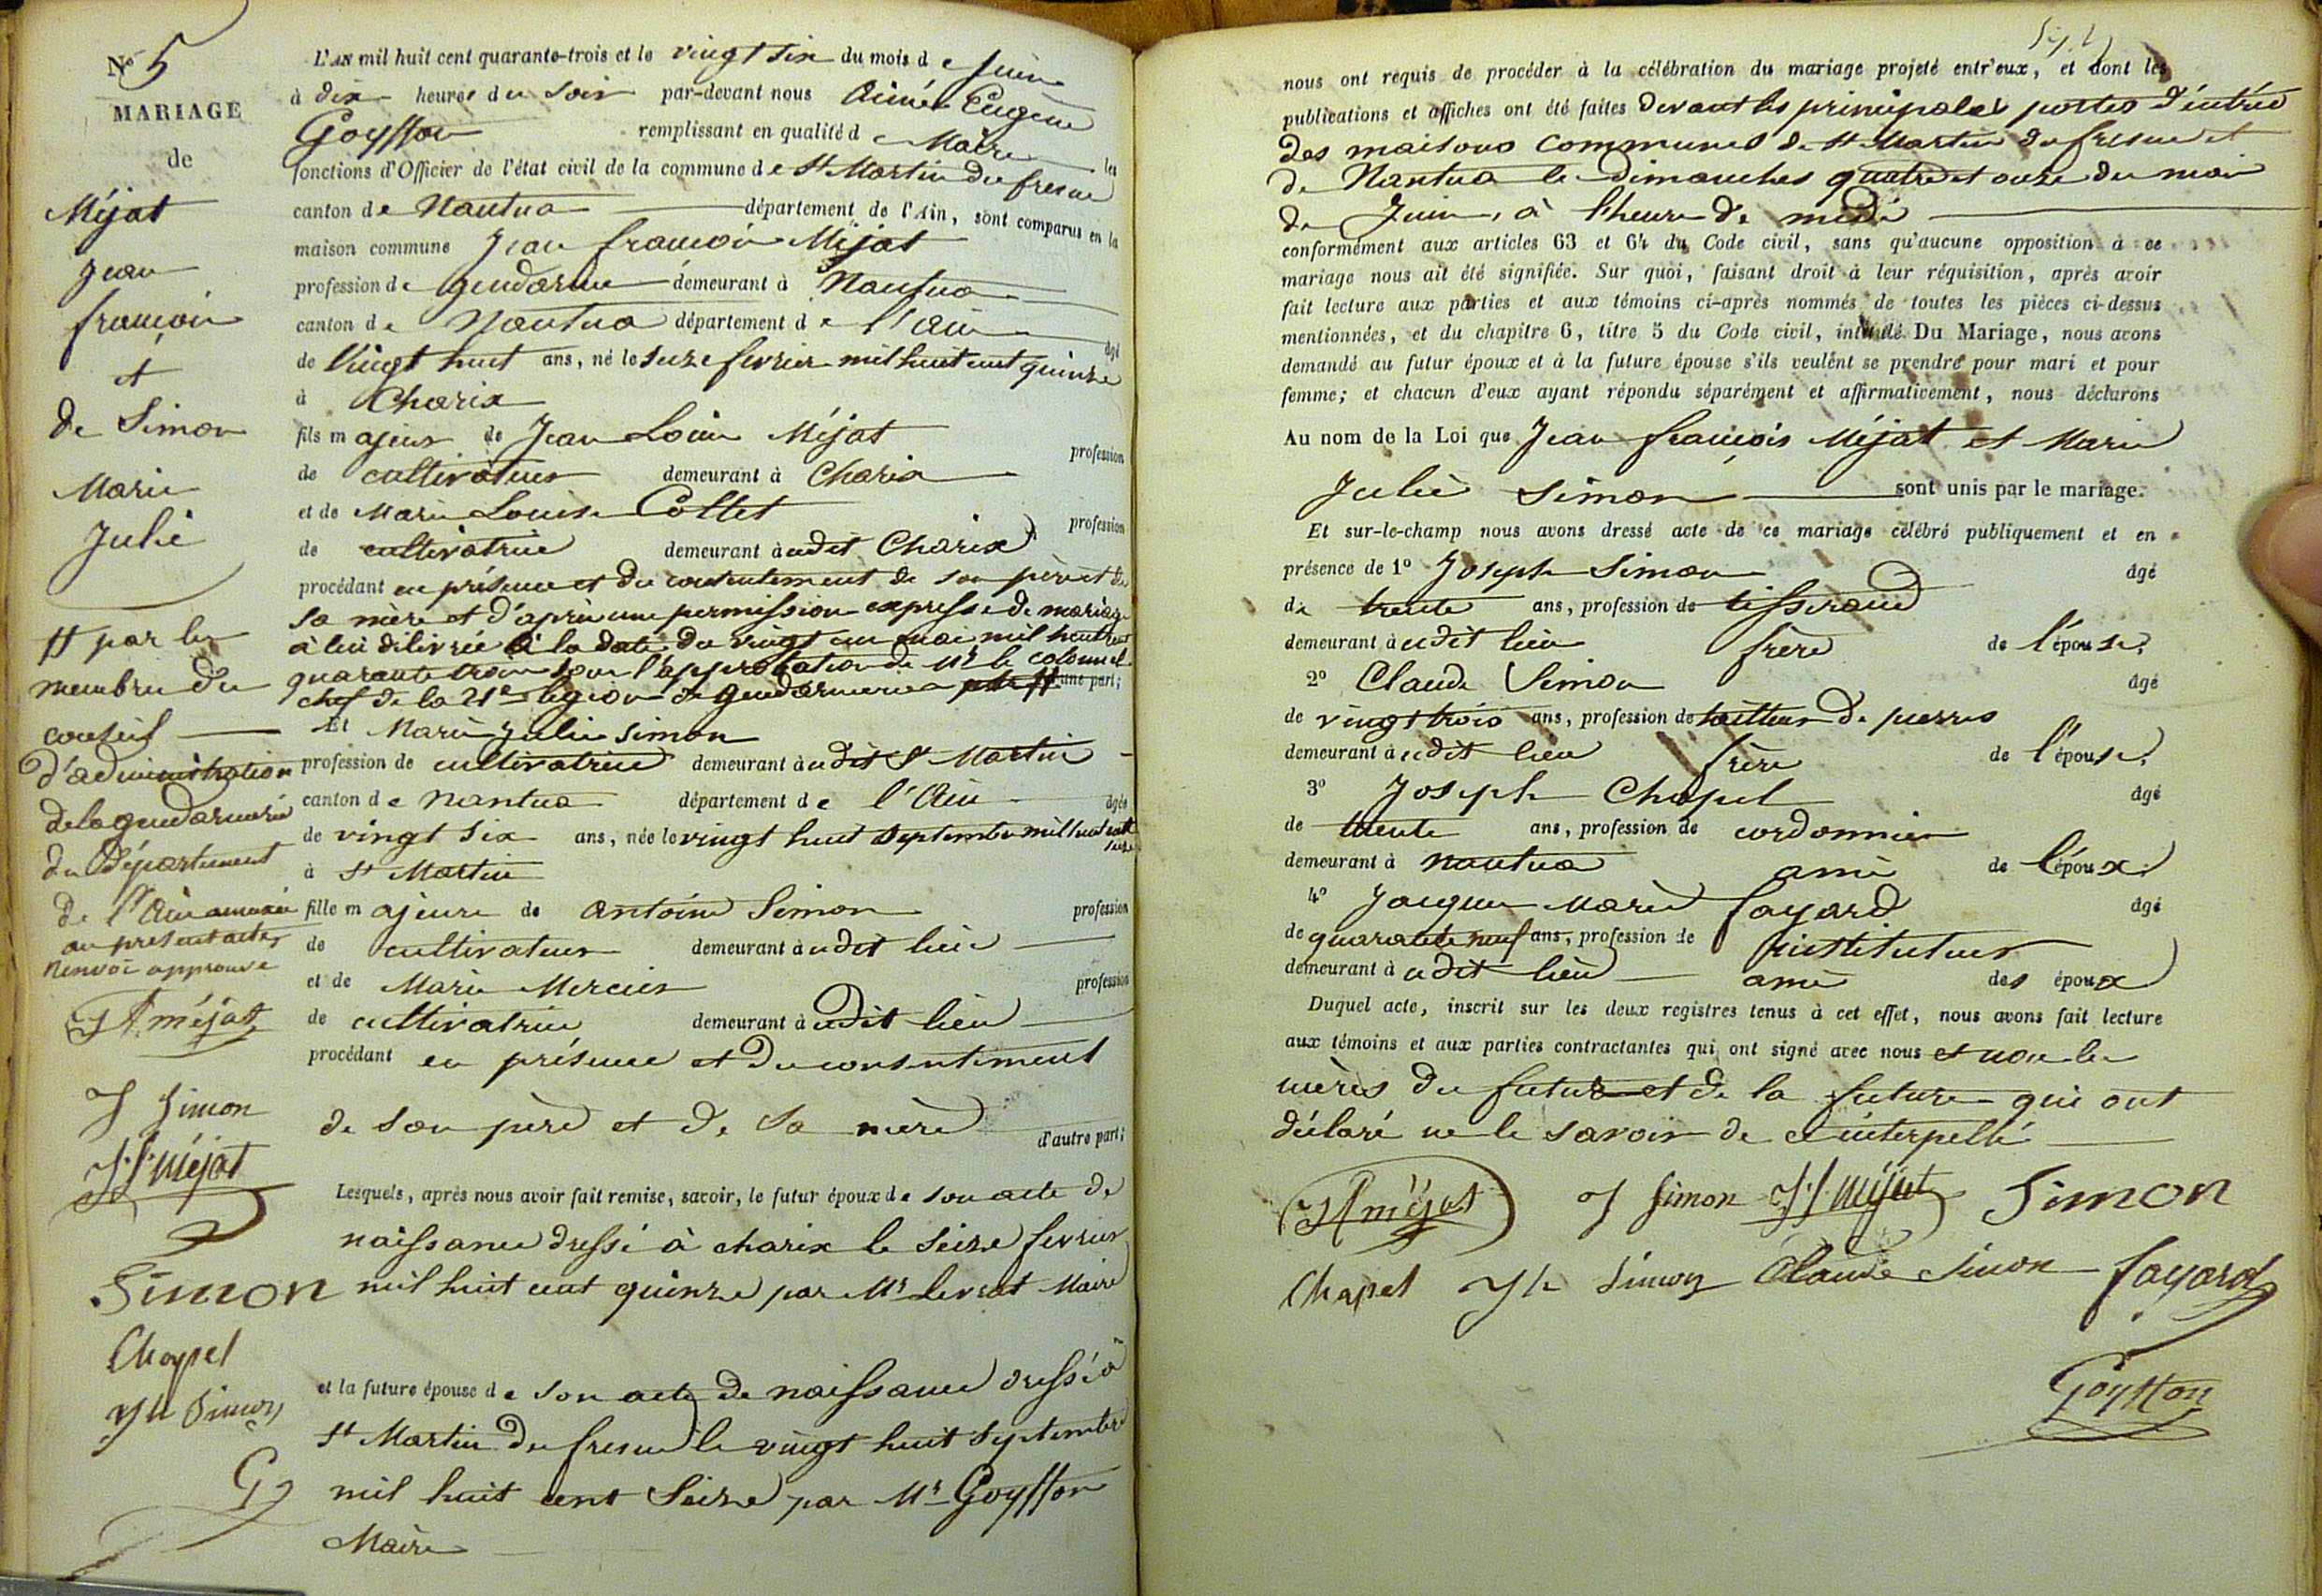 No 5
MARIAGE
de
Méjat
Jean
françois
et
de Simon
Marie
Julie
# par les
membres du
conseil
d'administration
de la gendarmerie
du Département
de l'Ain annexée
au présent acte,
Renvoi approuvé
Méjat
J Simon
J. f. Méjat
Simon
Chapel
Jh Simon
G
L'AN mil huit cent quarante-trois et le vingt six du mois de Juin
à dix heures du Soir par-devant nous Aimé Eugène
Goysson remplissant en qualité de Maire les
fonctions d'Officier de l'état civil de la commune de St Martin du fresne
canton de Nantua département de l'Ain, sont comparus en la
maison commune Jean françois Méjat
profession de gendarme demeurant à Nantua
canton de Nantua département de l'Ain âgé
de Vingt huit ans, né le seize fevrier mil huit cent quinze
à Charix
fils majeur de Jean Louis Méjat profession
de cultivateur demeurant à Charix
et de Marie Louise Collet profession
de cultivatrice demeurant à udit Charix
procédant en présence et du consentement de son père et de
sa mère et d'après une permission expresse de mariage
à lui délivrée à la date du vingt un mai mil huit cent
quarante trois sous l'approbation de Mr le colonnel
chef de la 21e légion de gendarmerie # d'une part;
Et Marie Julie Simon
profession de cultivatrice demeurant à udit St Martin
canton de Nantua département de l'Ain âgée
de vingt six ans, née le vingt huit septembre mil huit cent seize
à St Martin
fille majeure de Antoine Simon profession
de cultivateur demeurant à udit lieu
et de Marie Mercier profession
de cultivatrice demeurant à udit lieu
procédant en présence et du consentement
de son père et de sa mère d'autre part;
Lesquels, après nous avoir fait remise, savoir, le futur époux de son acte de
naissance dressé à charix le seize fevrier
mil huit cent quinze par Mr Levrat Maire
et la future épouse de son acte de naissance dressé à
St Martin du fresne le vingt huit septembre
mil huit cent seize par Mr Goysson
Maire
nous ont requis de procéder à la célébration du mariage projeté entr'eux, et dont les
publications et affiches ont été faites devant les principales portes d'entrée
des maisons communes de St Martin du fresne et
de Nantua le dimanches quatre et onze du mois
de Juin, à l'heure de midi
conformément aux articles 63 et 64 du Code civil, sans qu'aucune opposition à ce
mariage nous ait été signifiée. Sur quoi, faisant droit à leur réquisition, après avoir
fait lecture aux parties et aux témoins ci-après nommés de toutes les pièces ci-dessus
mentionnées, et du chapitre 6, titre 5 du Code civil, intitulé Du Mariage, nous avons
demandé au futur époux et à la future épouse s'ils veulent se prendre pour mari et pour
femme; et chacun d'eux ayant répondu séparément et affirmativement, nous déclarons
Au nom de la Loi que Jean françois Méjat et Marie
Julie Simon sont unis par le mariage.
Et sur-le-champ nous avons dressé acte de ce mariage célébré publiquement et en
présence de 1° Joseph Simon âgé
de trente ans, profession de tisserand
demeurant à udit lieu frère de l'épouse;
2° Claude Simon âgé
de vingt trois ans, profession de tailleur de pierres
demeurant à udit lieu frère de l'épouse;
3° Joseph Chapel âgé
de trente ans, profession de cordonnier
demeurant à Nantua ami de l'époux;
4° Jacques Marie fayard âgé
de quarante neuf ans, profession de instituteur
demeurant à udit lieu ami des époux
Duquel acte, inscrit sur les deux registres tenus à cet effet, nous avons fait lecture
aux témoins et aux parties contractantes qui ont signé avec nous et non les
mères du futur et de la future qui ont
déclaré ne le savoir de ce interpellé
Méjat J Simon J. f. Méjat Simon
Chapel Jh Simon Claude Simon fayard
Goysson